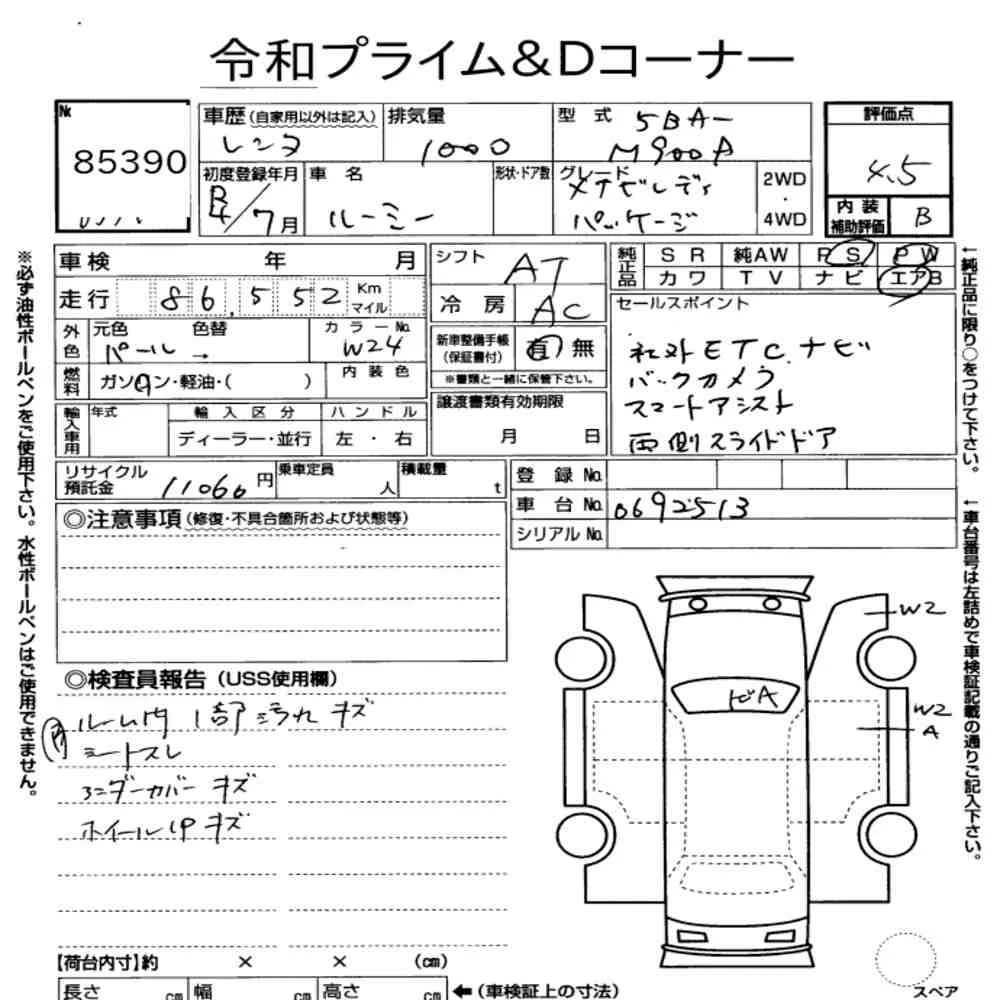 令和プライム&Dコーナー
№ 85390
車歴 (自家用以外は記入) レンタ
排気量 1000
型式 5BA- M900A
評価点 4.5
初度登録年月 R4/7月
車名 ルーミー
形状・ドア数
グレード
パッケージ
2WD
4WD
内装補助評価 B
車検 年 月
走行 86,552 Km マイル
外色 元色 パール → 色替
カラーNo. W24
燃料 ガソリン・軽油・( )
内装色
輸入車用 年式 輸入区分 ディーラー・並行
ハンドル 左・右
シフト AT
冷房 AC
新車整備手帳 (保証書付) 有 無
※書類と一緒に保管下さい。
譲渡書類有効期限
月 日
純正品 SR 純AW PS PW
カワ TV ナビ エアB
セールスポイント
社外ETC.ナビ
バックカメラ
スマートアシスト
両側スライドドア
リサイクル預託金 11060円
乗車定員 人
積載量 t
登録No.
車台No. 0692513
シリアルNo.
◎注意事項 (修復・不具合箇所および状態等)
◎検査員報告 (USS使用欄)
内 ルーム内 1部 汚れ キズ
シートスレ
アンダーカバー キズ
ホイールUP キズ
W2
W2
A
ビA
【荷台内寸】約 × × (cm)
長さ cm 幅 cm 高さ cm
←(車検証上の寸法)
スペア
※必ず油性ボールペンをご使用下さい。水性ボールペンはご使用できません。
←純正品に限り○をつけて下さい。
←車台番号は左詰めで車検証記載の通りご記入下さい。